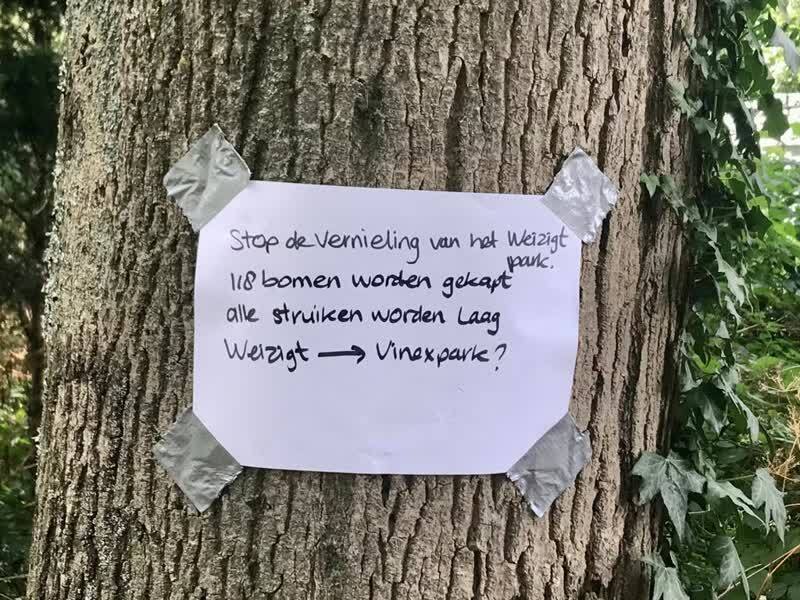 Stop de Vernieling van het Weizigt
park.
118 bomen worden gekapt
alle struiken worden Laag
Weizigt → Vinexpark?